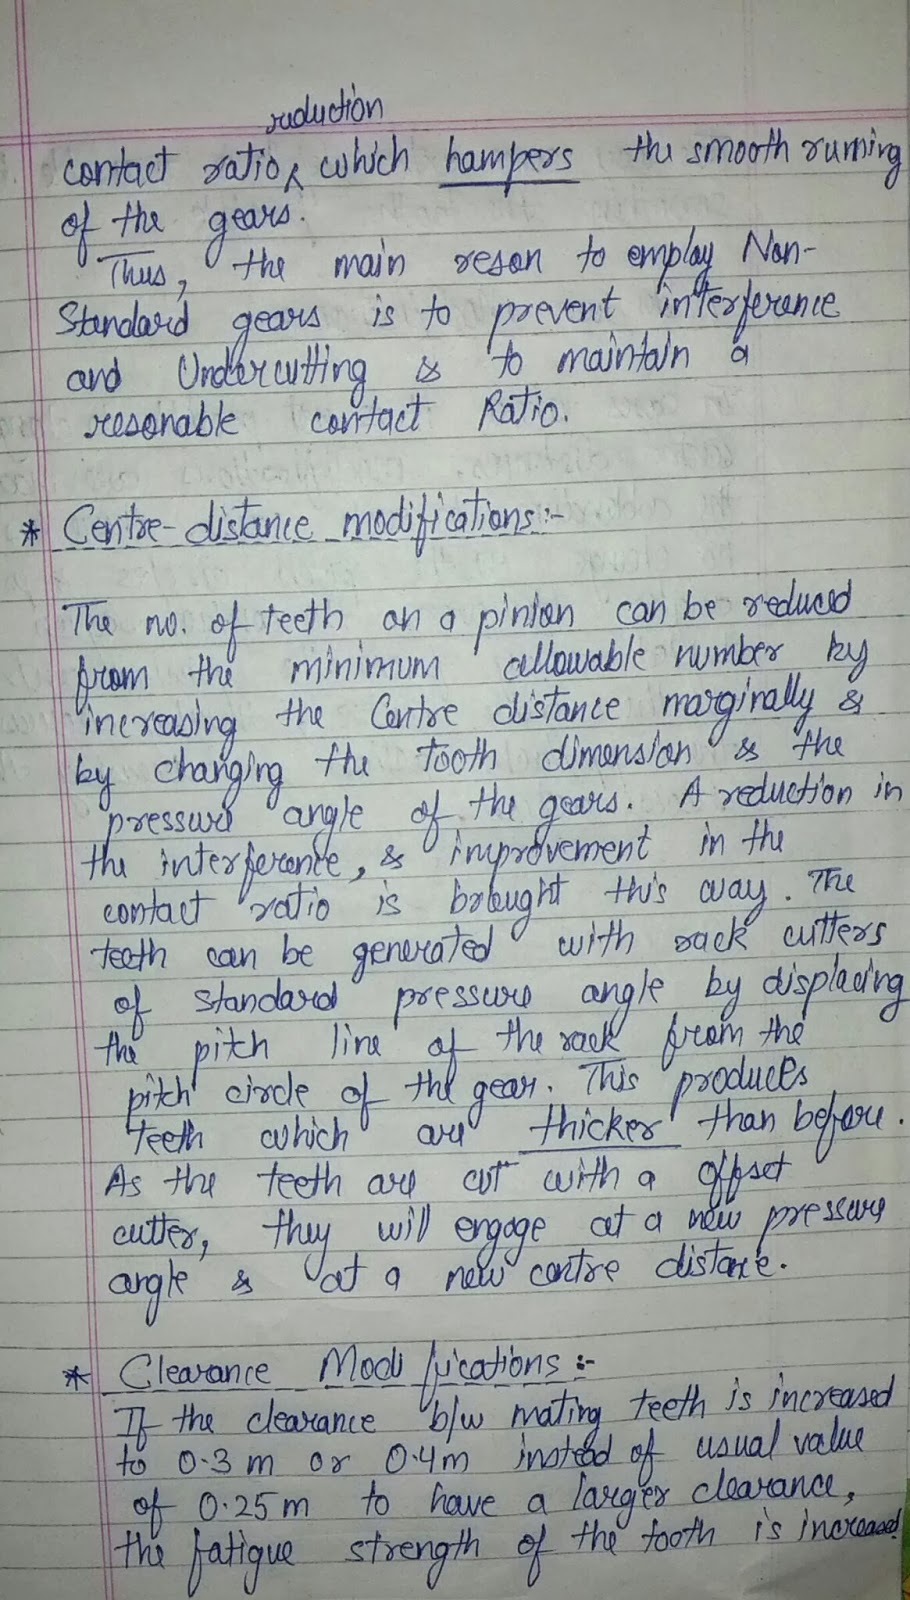 reduction
contact ratio, which hampers the smooth running
of the gears.
Thus, the main reson to employ Non-
Standard gears is to prevent interference
and Undercutting & to maintain a
resonable contact Ratio.
* Centre-distance modifications:-
The no. of teeth on a pinion can be reduced
from the minimum allowable number by
increasing the Centre distance marginally &
by changing the tooth dimension & the
pressure angle of the gears. A reduction in
the interference, & improvement in the
contact ratio is brought this way. The
teeth can be generated with rack cutters
of standard pressure angle by displacing
the pitch line of the rack from the
pitch circle of the gear. This produces
teeth which are thicker than before.
As the teeth are cut with a offset
cutter, they will engage at a new pressure
angle & at a new centre distance.
* Clearance Modifications:-
If the clearance b/w mating teeth is increased
to 0.3 m or 0.4m instead of usual value
of 0.25 m to have a larger clearance,
the fatigue strength of the tooth is increased